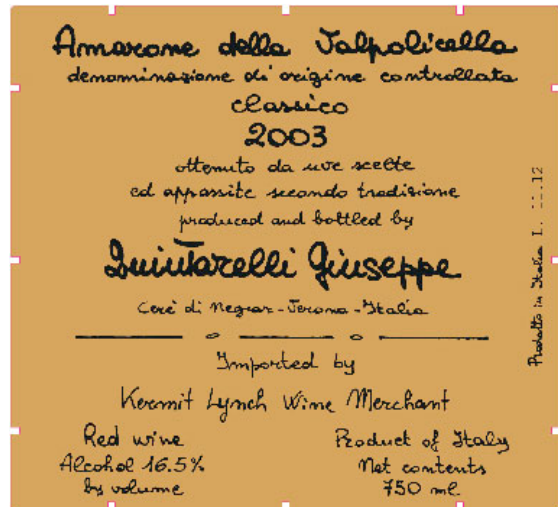 Amarone della Valpolicella
denominazione di origine controllata
classico
2003
ottenuto da uve scelte
ed appassite secondo tradizione
produced and bottled by
Quintarelli Giuseppe
Cerè di Negrar - Verona - Italia
Imported by
Kermit Lynch Wine Merchant
Red wine
Alcohol 16.5%
by volume
Product of Italy
Net contents
750 ml
Prodotto in Italia L.